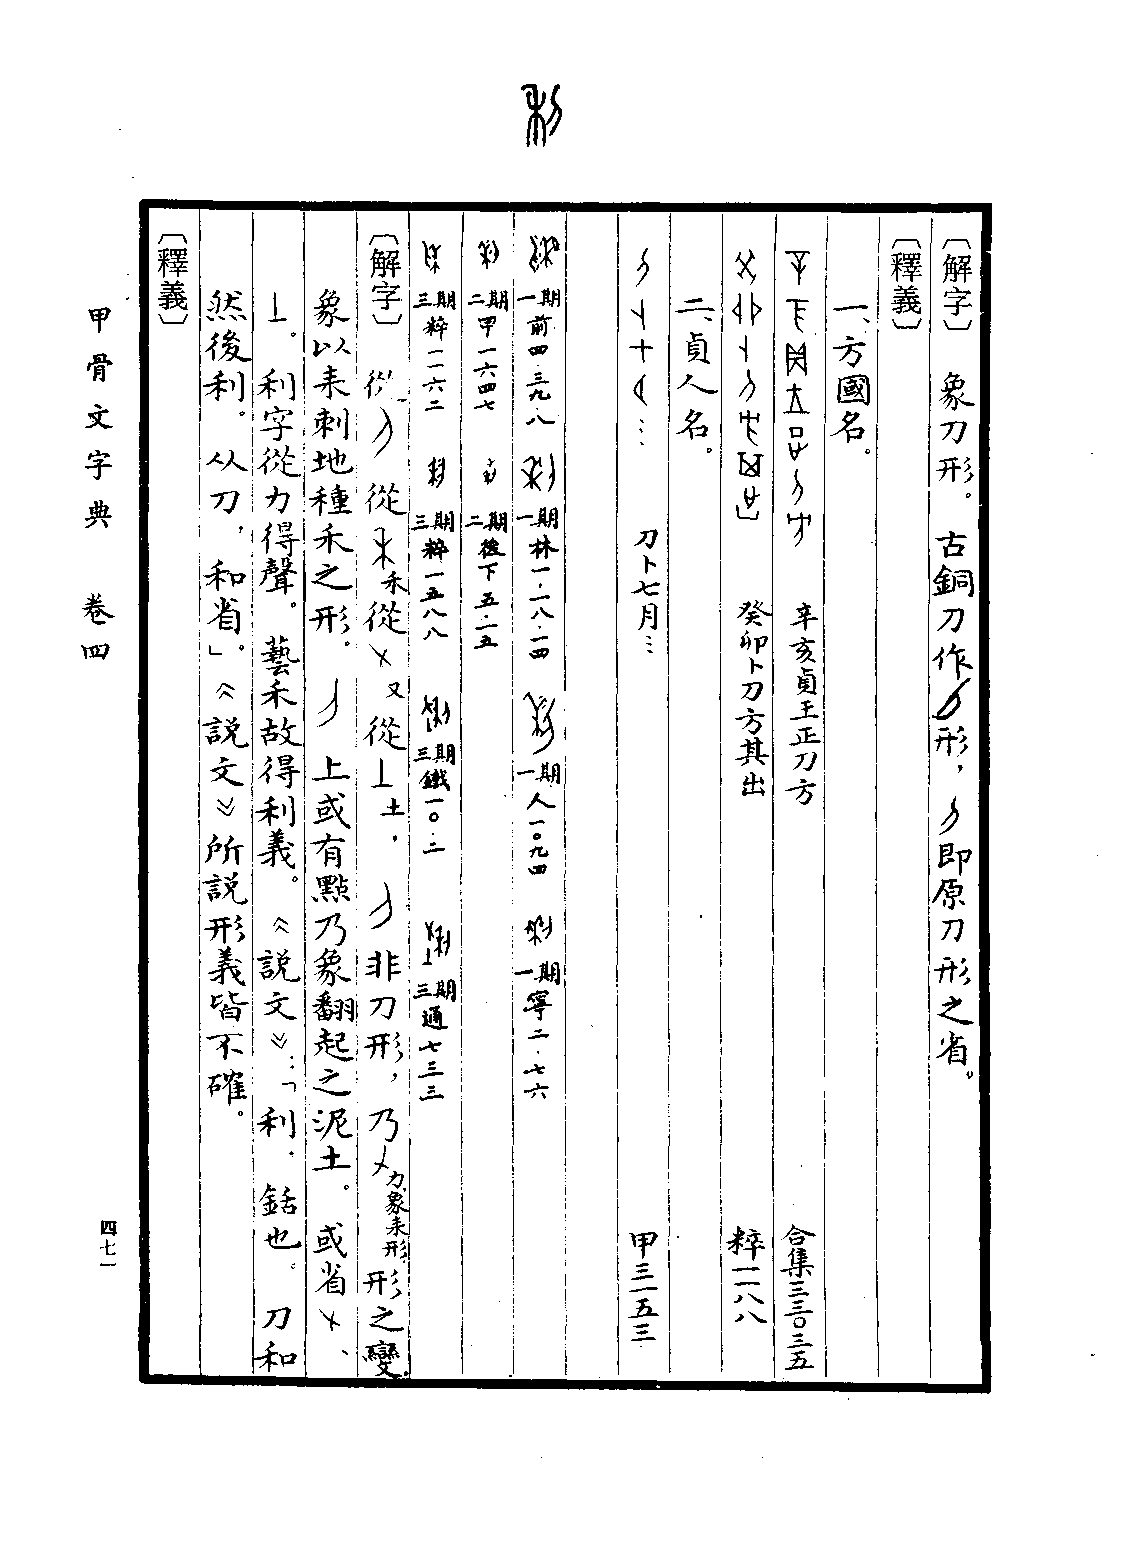 利
〔解字〕象刀形。古銅刀作形，即原刀形之省。
〔釋義〕
一、方國名。
辛亥貞王正刀方 合集三三〇三五
癸卯卜刀方其出 粹一一八八
二、貞人名。
刀卜七月… 甲三一五三
一期前四·三九·八 一期林一·一八·一四 一期人一〇九四 一期寧二·七六
二期甲一六四七 二期後下五·一五
三期粹一一六二 三期粹一五八八 三期鐵一〇·二 三期通七三三
〔解字〕從從禾從又從土，非刀形，乃力象耒形，形之變。
象以耒刺地種禾之形。上或有點乃象翻起之泥土。或省、
。利字從力得聲。藝禾故得利義。《說文》：「利，銛也。刀和
然後利。从刀，和省。」《說文》所說形義皆不確。
〔釋義〕
甲骨文字典 卷四
四七一